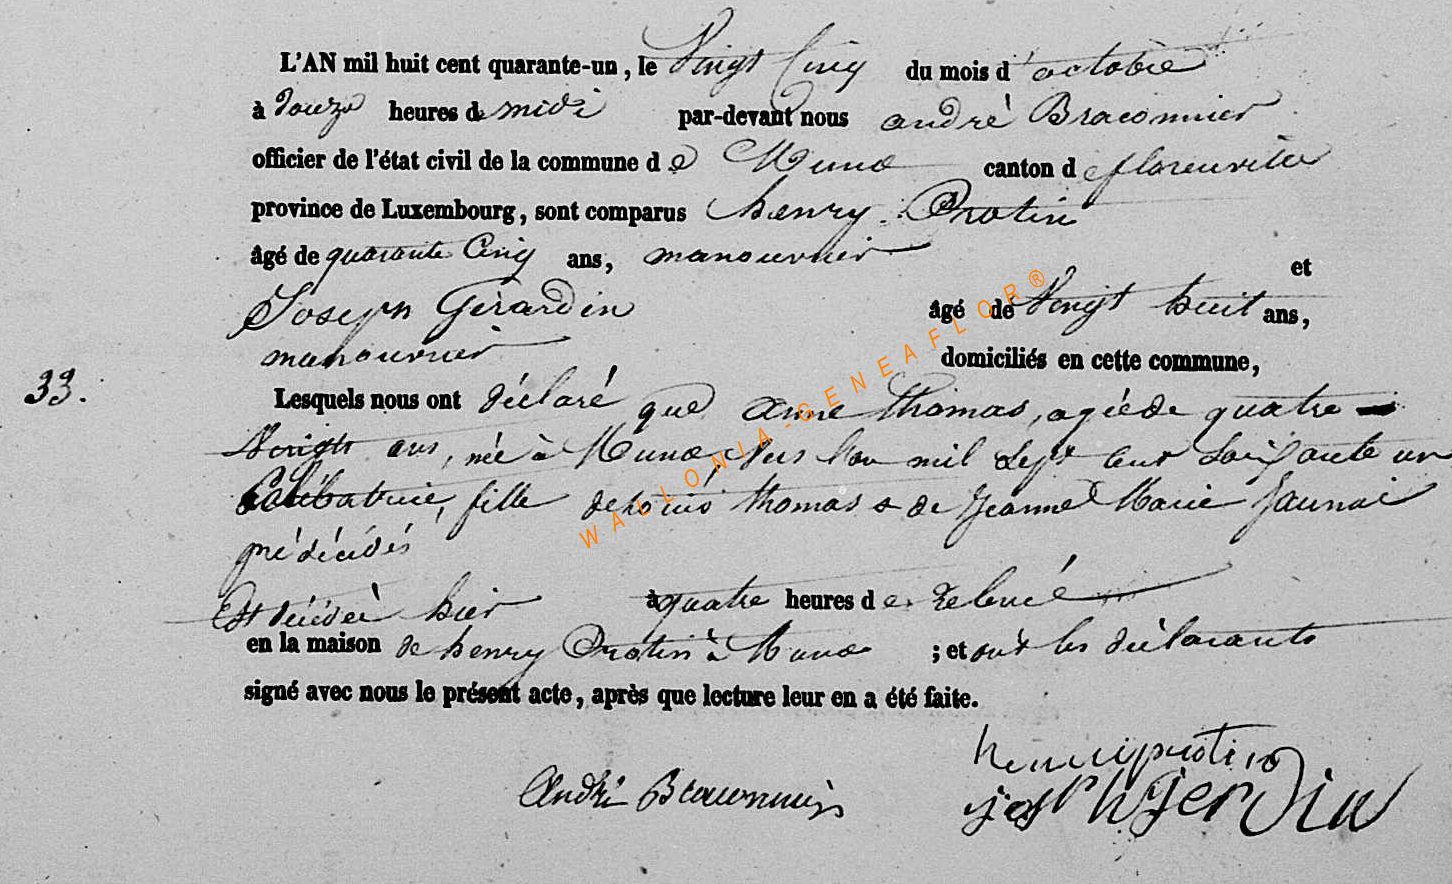 L'AN mil huit cent quarante-un, le Vingt Cinq du mois d'octobre
à douze heures de midi par-devant nous andré Braconnier
officier de l'état civil de la commune de Muno canton de florenville
province de Luxembourg, sont comparus henry Protin
âgé de quarante Cinq ans, manouvrier et
Joseph Gérardin âgé de Vingt huit ans,
manouvrier domiciliés en cette commune,
33. Lesquels nous ont déclaré que anne thomas, agée de quatre
Vingts ans, née à Muno, Vers l'an mil sept cent soixante un
Célibataire, fille de thomas & de Jeanne Marie Jaunai
prédécédés
Est décédée hier à quatre heures de relevée
en la maison de henry Protin à Muno ; et ont les déclarants
signé avec nous le présent acte, après que lecture leur en a été faite.
henri protin
André Braconnier
joseph gerdin
WALLONIA-GENEAFLOR®